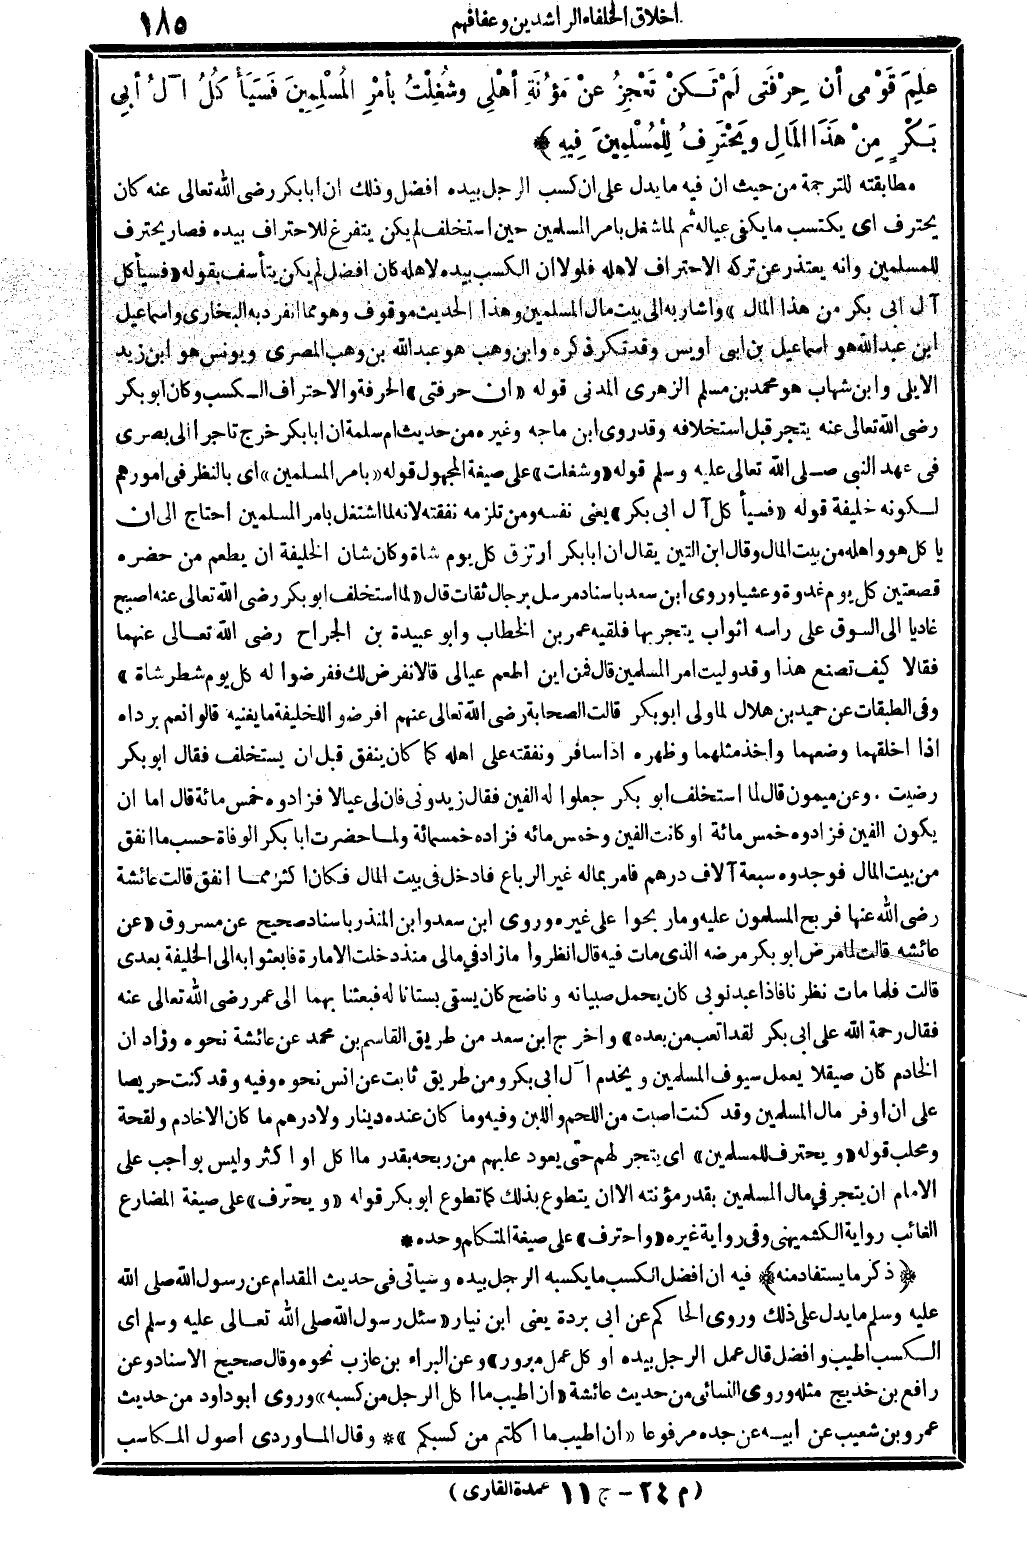 اخلاق الخلفاء الراشدين وعفافهم
١٨٥
عَلِمَ قَوْمِى أن حِرْفَتِى لَمْ تَكُنْ تَعْجِزُ عنْ مَؤُنَةِ أهْلِى وشُغِلْتُ بأمْرِ الْمُسْلِمِينَ فَسَيَأْ كُلُ آلُ أبِي
بَكْرٍ مِنْ هَذَا المَالِ ويَحْتَرِفُ لِلْمُسْلِمِينَ فِيهِ ﴾
مطابقته للترجمة من حيث ان فيه ما يدل على ان كسب الرجل بيده افضل وذلك ان ابا بكر رضى الله تعالى عنه كان
يحترف اى يكتسب ما يكفى عياله ثم لما شغل بامر المسلمين حين استخلف لم يكن يتفرغ للاحتراف بيده فصار يحترف
للمسلمين وانه يعتذر عن تركه الاحتراف لاهله فلولا ان الكسب بيده لاهله كان افضل لم يكن يتأسف بقوله «فسيأكل
آل ابى بكر من هذا المال » واشار به الى بيت مال المسلمين وهذا الحديث موقوف وهو مما انفرد به البخارى واسماعيل
ابن عبدالله هو اسماعيل بن ابى اويس وقد تكرر ذكره وابن وهب هو عبدالله بن وهب المصرى ويونس هو ابن زيد
الايلى وابن شهاب هو محمد بن مسلم الزهرى المدنى قوله «ان حرفتى» الحرفة والاحتراف الكسب وكان ابو بكر
رضى الله تعالى عنه يتجر قبل استخلافه وقد روى ابن ماجه وغيره من حديث ام سلمة ان ابا بكر خرج تاجرا الى بصرى
فى عهد النبى صلى الله تعالى عليه وسلم قوله «وشغلت» على صيغة المجهول قوله «بامر المسلمين» اى بالنظر فى امورهم
لكونه خليفة قوله «فسيأ كل آل ابى بكر» يعنى نفسه ومن تلزمه نفقته لانه لما اشتغل بامر المسلمين احتاج الى ان
يا كل هو واهله من بيت المال وقال ابن التين يقال ان ابا بكر ارتزق كل يوم شاة وكان شان الخليفة ان يطعم من حضره
قصعتين كل يوم غدوة وعشيا وروى ابن سعد باسناد مرسل برجال ثقات قال «لما استخلف ابو بكر رضى الله تعالى عنه اصبح
غاديا الى السوق على راسه اثواب يتجر بها فلقيه عمر بن الخطاب وابو عبيدة بن الجراح رضى الله تعالى عنهما
فقالا كيف تصنع هذا وقد وليت امر المسلمين قال فمن اين اطعم عيالى قالا نفرض لك ففرضوا له كل يوم شطر شاة »
وفى الطبقات عن حميد بن هلال لما ولى ابو بكر قالت الصحابة رضى الله تعالى عنهم افرضوا للخليفة ما يغنيه قالوا نعم برداه
اذا اخلقهما وضعهما وأخذ مثلهما وظهره اذا سافر ونفقته على اهله كما كان ينفق قبل ان يستخلف فقال ابو بكر
رضيت . وعن ميمون قال لما استخلف ابو بكر جعلوا له الفين فقال زيدونى فان لى عيالا فزادوه خمس مائة قال اما ان
يكون الفين فزادوه خمس مائة او كانت الفين وخمس مائه فزاده خمسمائة ولما حضرت ابا بكر الوفاة حسب ما انفق
من بيت المال فوجدوه سبعة آلاف درهم فامر بماله غير الرباع فادخل فى بيت المال فكان اكثر مما انفق قالت عائشة
رضى الله عنها فربح المسلمون عليه وما ربحوا على غيره وروى ابن سعد وابن المنذر باسناد صحيح عن مسروق «عن
عائشه قالت لما مرض ابو بكر مرضه الذى مات فيه قال انظروا ما زاد في مالى منذ دخلت الامارة فابعثوا به الى الخليفة بعدى
قالت فلما مات نظرنا فاذا عبد نوبى كان يحمل صبيانه وناضح كان يسقى بستانا له فبعثنا بهما الى عمر رضى الله تعالى عنه
فقال رحمة الله على ابى بكر لقد اتعب من بعده» واخرج ابن سعد من طريق القاسم بن محمد عن عائشة نحوه وزاد ان
الخادم كان صيقلا يعمل سيوف المسلمين ويخدم آل ابى بكر ومن طريق ثابت عن انس نحوه وفيه وقد كنت حريصا
على ان اوفر مال المسلمين وقد كنت اصبت من اللحم واللبن وفيه وما كان عنده دينار ولا درهم ما كان الا خادم ولقحة
ومحلب قوله «ويحترف للمسلمين» اى يتجر لهم حتى يعود عليهم من ربحه بقدر ما اكل او اكثر وليس بواجب على
الامام ان يتجر في مال المسلمين بقدر مؤنته الا ان يتطوع بذلك كما تطوع ابو بكر قوله «ويحترف» على صيغة المضارع
الغائب رواية الكشميهنى وفى رواية غيره «واحترف» على صيغة المتكلم وحده *
﴿ ذكر ما يستفاد منه﴾ فيه ان افضل الكسب ما يكسبه الرجل بيده وسياتى فى حديث المقدام عن رسول الله صلى الله
عليه وسلم ما يدل على ذلك وروى الحا كم عن ابى بردة يعنى ابن نيار «سئل رسول الله صلى الله تعالى عليه وسلم اى
الكسب اطيب وافضل قال عمل الرجل بيده او كل عمل مبرور» وعن البراء بن عازب نحوه وقال صحيح الاسناد وعن
رافع بن خديج مثله وروى النسائى من حديث عائشة «ان اطيب ما ا كل الرجل من كسبه» وروى ابو داود من حديث
عمرو بن شعيب عن ابيه عن جده مرفوعا «ان اطيب ما اكلتم من كسبكم »* وقال الماوردى اصول المكاسب
(م ٢٤ - ج ١١ عمدة القارى)